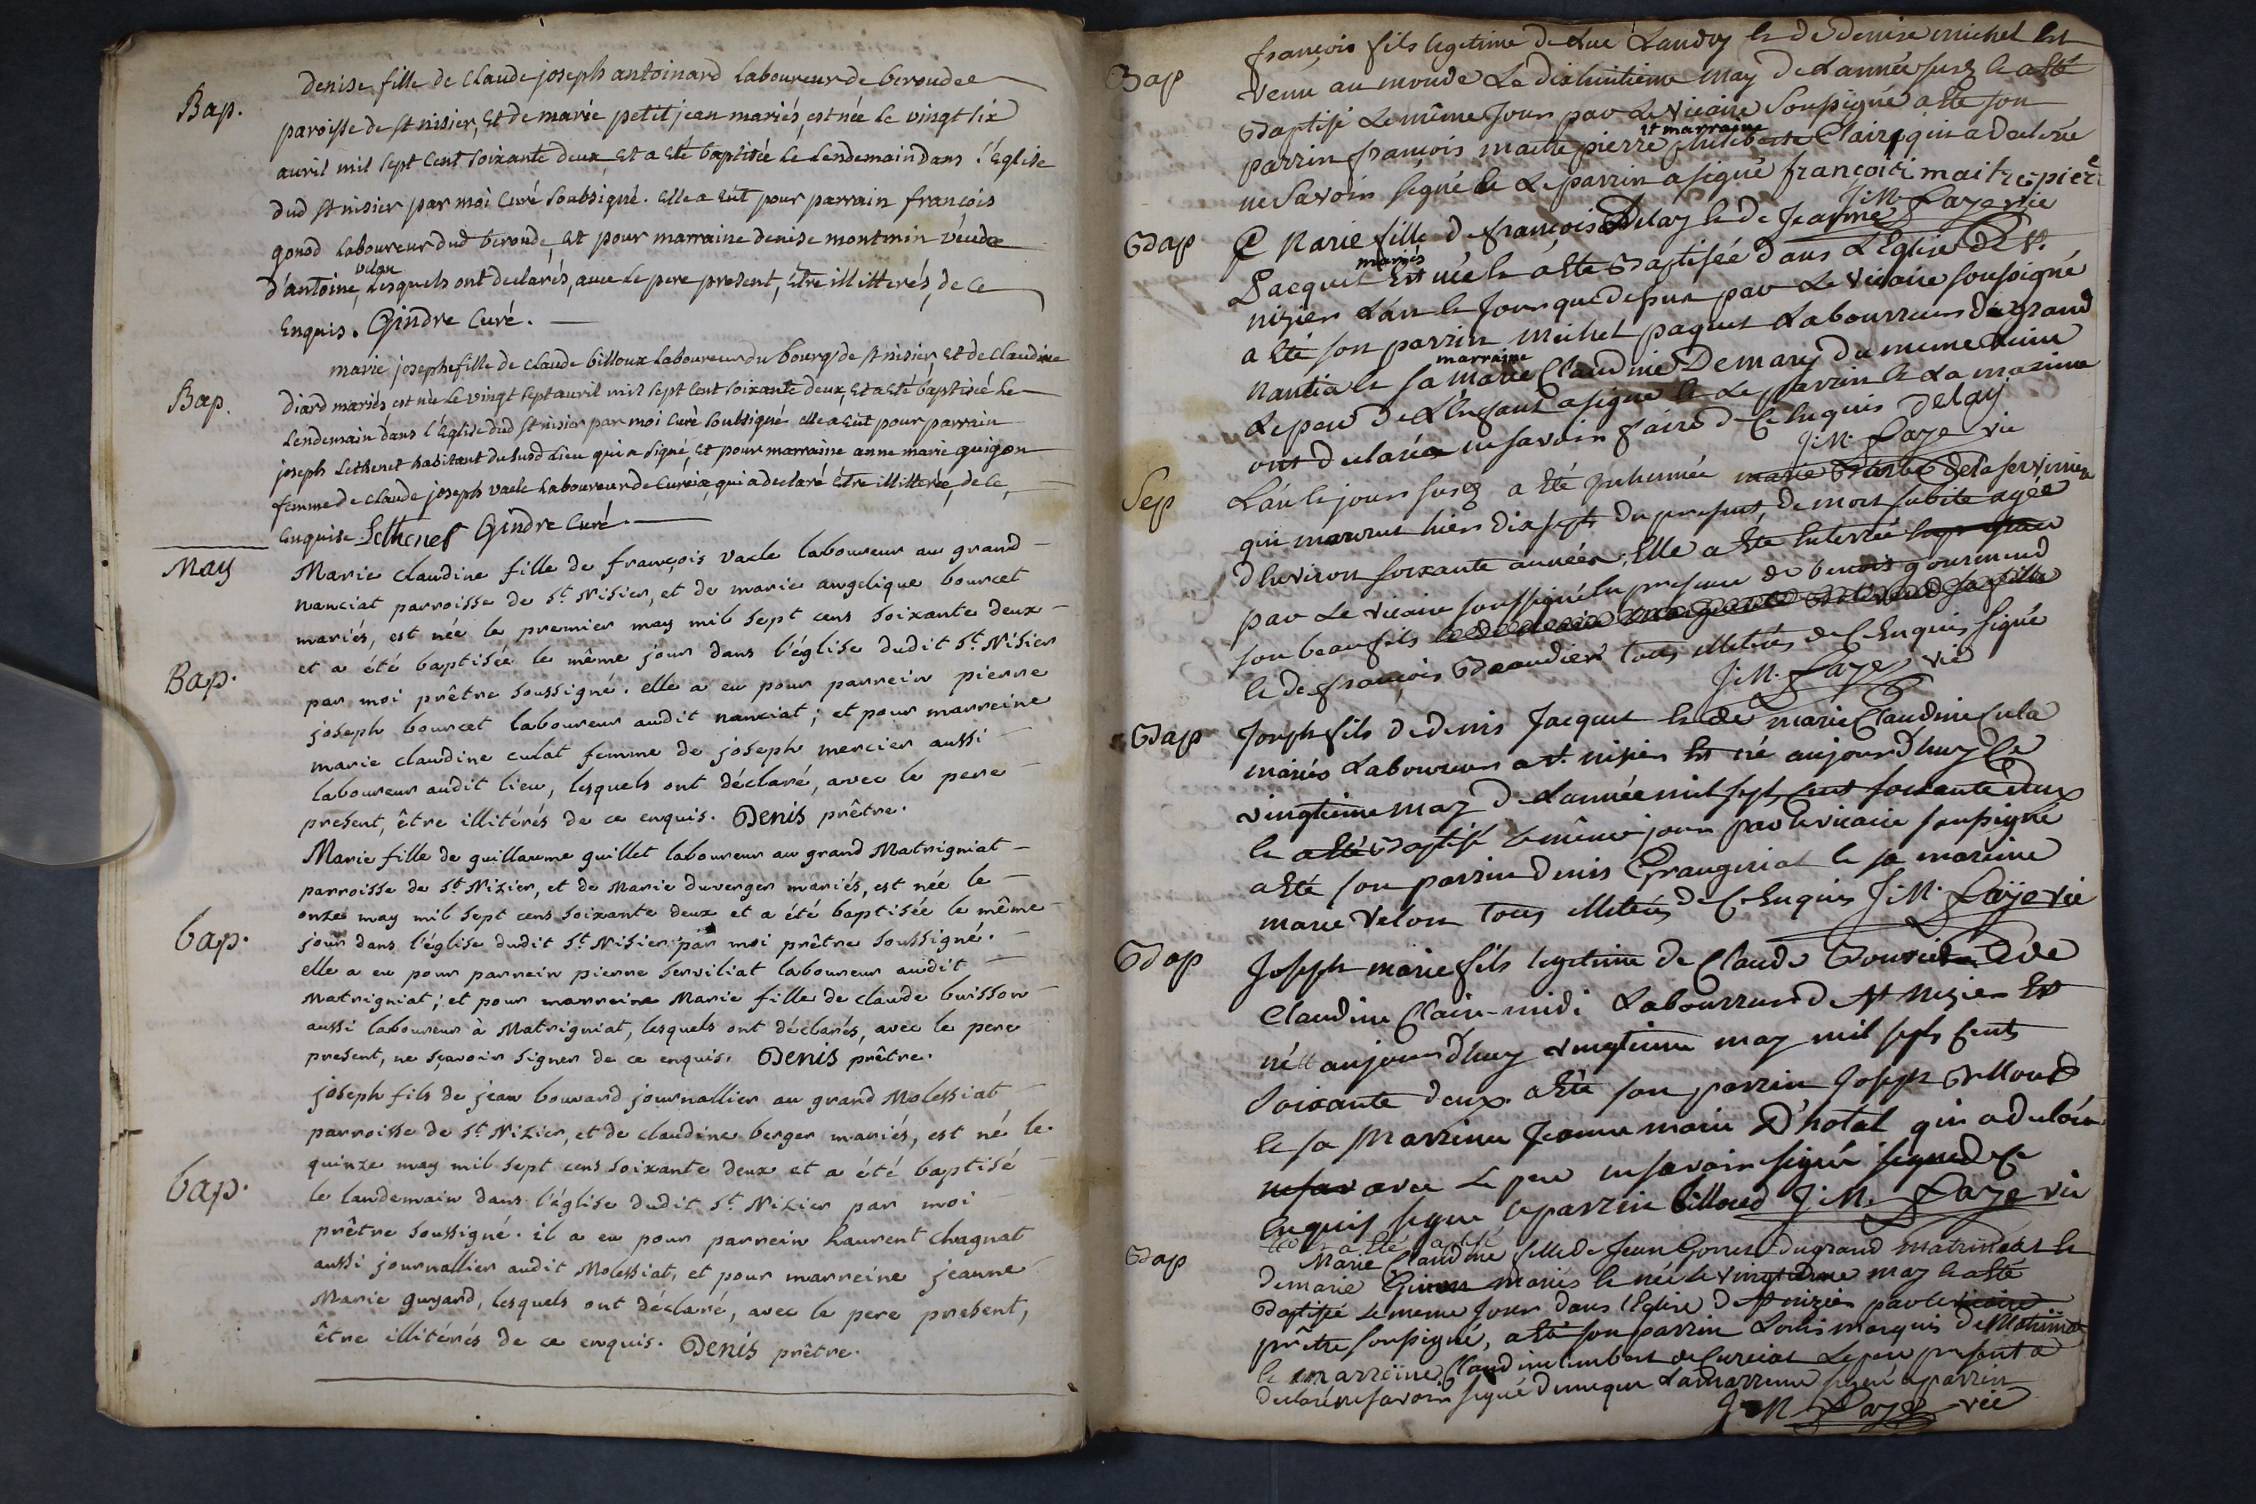 Bap.
denise fille de claude joseph antoinard laboureur de beroudee
paroisse de st nisier, Et de marie petit jean mariés, est née le vingt six
avril mil sept Cent soixante deux Et a Eté baptisée le Lendemain dans l'Eglise
dud st nisier par moi Curé soubsigné. Elle a Eut pour parrain françois
gonod laboureur dud beroude, Et pour marraine denise montmin veuve
vilan
d'antoine, Lesquels ont declarés, avec le pere present, Etre illitterés, de ce
Enquis. Gindre Curé.
Bap.
marie josephe fille de Claude billoux laboureur du bourg de st nisier Et de Claudine
diard mariés est née Le vingt sept avril mil sept Cent soixante deux, Et a Eté baptisée Le
Lendemain dans l'Eglise dud st nisier par moi Curé soubsigné elle a Eut pour parrain
joseph Lethenet habitant du susd Lieu qui a signé, Et pour marraine anne marie guigon
femme de Claude joseph vacle Laboureur de Curcia, qui a declaré Etre illitterée, de ce,
Enquise. Lethenet Gindre Curé
May
Bap.
Marie claudine fille de françois vacle laboureur au grand
nanciat parroisse de St Nisier, et de marie angelique bourcet
mariés, est née le premier may mil sept cens soixante deux
et a été baptisée le même jour dans l'église dudit St Nisier
par moi prêtre soussigné. elle a eu pour parrein pierre
joseph bourcet laboureur audit nanciat; et pour marreine
marie claudine culat femme de joseph mercier aussi
laboureur audit lieu, lesquels ont déclaré, avec le pere
present, être illitérés de ce enquis. Denis prêtre.
bap.
Marie fille de guillaume guillet laboureur au grand Matrigniat
parroisse de St Nizier, et de Marie duverger mariés, est née le
onze may mil sept cens soixante deux et a été baptisée le même
jour dans l'église dudit St Nisier par moi prêtre soussigné.
elle a eu pour parrein pierre serviliat laboureur audit
Matrigniat; et pour marreine Marie fille de claude buisson
aussi laboureur à Matrigniat, lesquels ont déclarés, avec le pere
present, ne sçavoir signer de ce enquis. Denis prêtre.
bap.
joseph fils de jean bouvard journallier au grand Molessiat
parroisse de St Nizier, et de claudine berger mariés, est né le
quinze may mil sept cens soixante deux et a été baptisé
le landemain dans l'église dudit St Nizier par moi
prêtre soussigné. il a eu pour parrein haurent chagnat
aussi journallier audit Molessiat, et pour marreine jeanne
Marie guyard, lesquels ont déclaré, avec le pere present,
être illitérés de ce enquis. Denis prêtre.
Bap
françois fils legitime de Luc Landoy Et de denise michel Est
venu au monde Le dixhuitieme may de Lannée susd Et a Eté
Baptisé Le même Jour par Le Vicaire Soussigné a Eté son
et marraine
parrin françois maitre pierre philiberte Claire qui a declarée
ne Savoir signé Et Le parrin a signé françois maitrepiere
J. M. Laye vic
Bap
Marie fille de françois Delay Et de Jeanne
mariés
Jacquet Est née Et a Eté Baptisée dans L'Eglise de St
nizier Lan Et Jour que dessus par Le Vicaire soussigné
a Eté son parrin michel paquet Labourreur de grand
marraine
Nantia Et sa Claudine Demary du meme Lieu
Le pere de L'Enfant a signé Et Le parrin Et La marrine
ont declarée ne savoir faire de C Enquis delay
J. M. Laye vic
Sep
L'an Et jour susd a Eté Inhumée marie Barbe de la servinniere
qui mourut hier dix sept du present, de mort subite agée
d'heviron soixante années, Elle a Ete Enterrée
par Le vicaire soussigné En presence de benois gourmend
son beau fils
Et de françois Beaudier tous illiterés de C Enquis signé
J. M. Laye vic
Bap
Joseph fils de denis Jacquet Et de marie Claudine Cula
mariés Laboureur a St nizier Est né aujourd'huy Le
vingtieme may de Lannée mil sept Cent soixante deux
Et a Eté Baptisé Le même jour par Le vicaire soussigné
a Eté son parrin denis Grangeriat Et sa mareine
marie Velon tous illiterés de C Enquis J. M. Laye vic
Bap
Joseph marie fils legitime de Claude Et de
Claudine Claire-midi Labourreur de St Nizier Est
né aujourd'huy vingtieme may mil sept Cent
Soixante deux. a Eté son parrin Joseph Billoud
Et sa Marrinne Jeanne marie D'hotal qui a declaré
ne sav avec Le pere ne savoir signé signé de C
Enquis signé Le parrin billoud J. M. Laye vic
Bap
Marie Claudine fille de Jean Gonet du grand matrinnat Et
de marie mariés Et née Le vingtieme may Et a Eté
Baptisée Le meme Jour dans l'Eglise de St nizier par Le vicaire
prêtre soussigné, a Eté son parrin Louis marquis de Matrinnat
Et marreine Claudine imbert de Curciat Le pere present a
declaré ne savoir signé de meque La marreine signé Le parrin
J. M. Laye vic